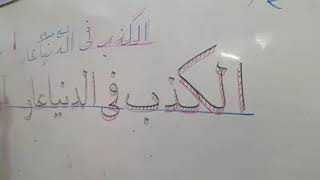 الكذب في الدنيا عار
الكذب في الدنيا عار